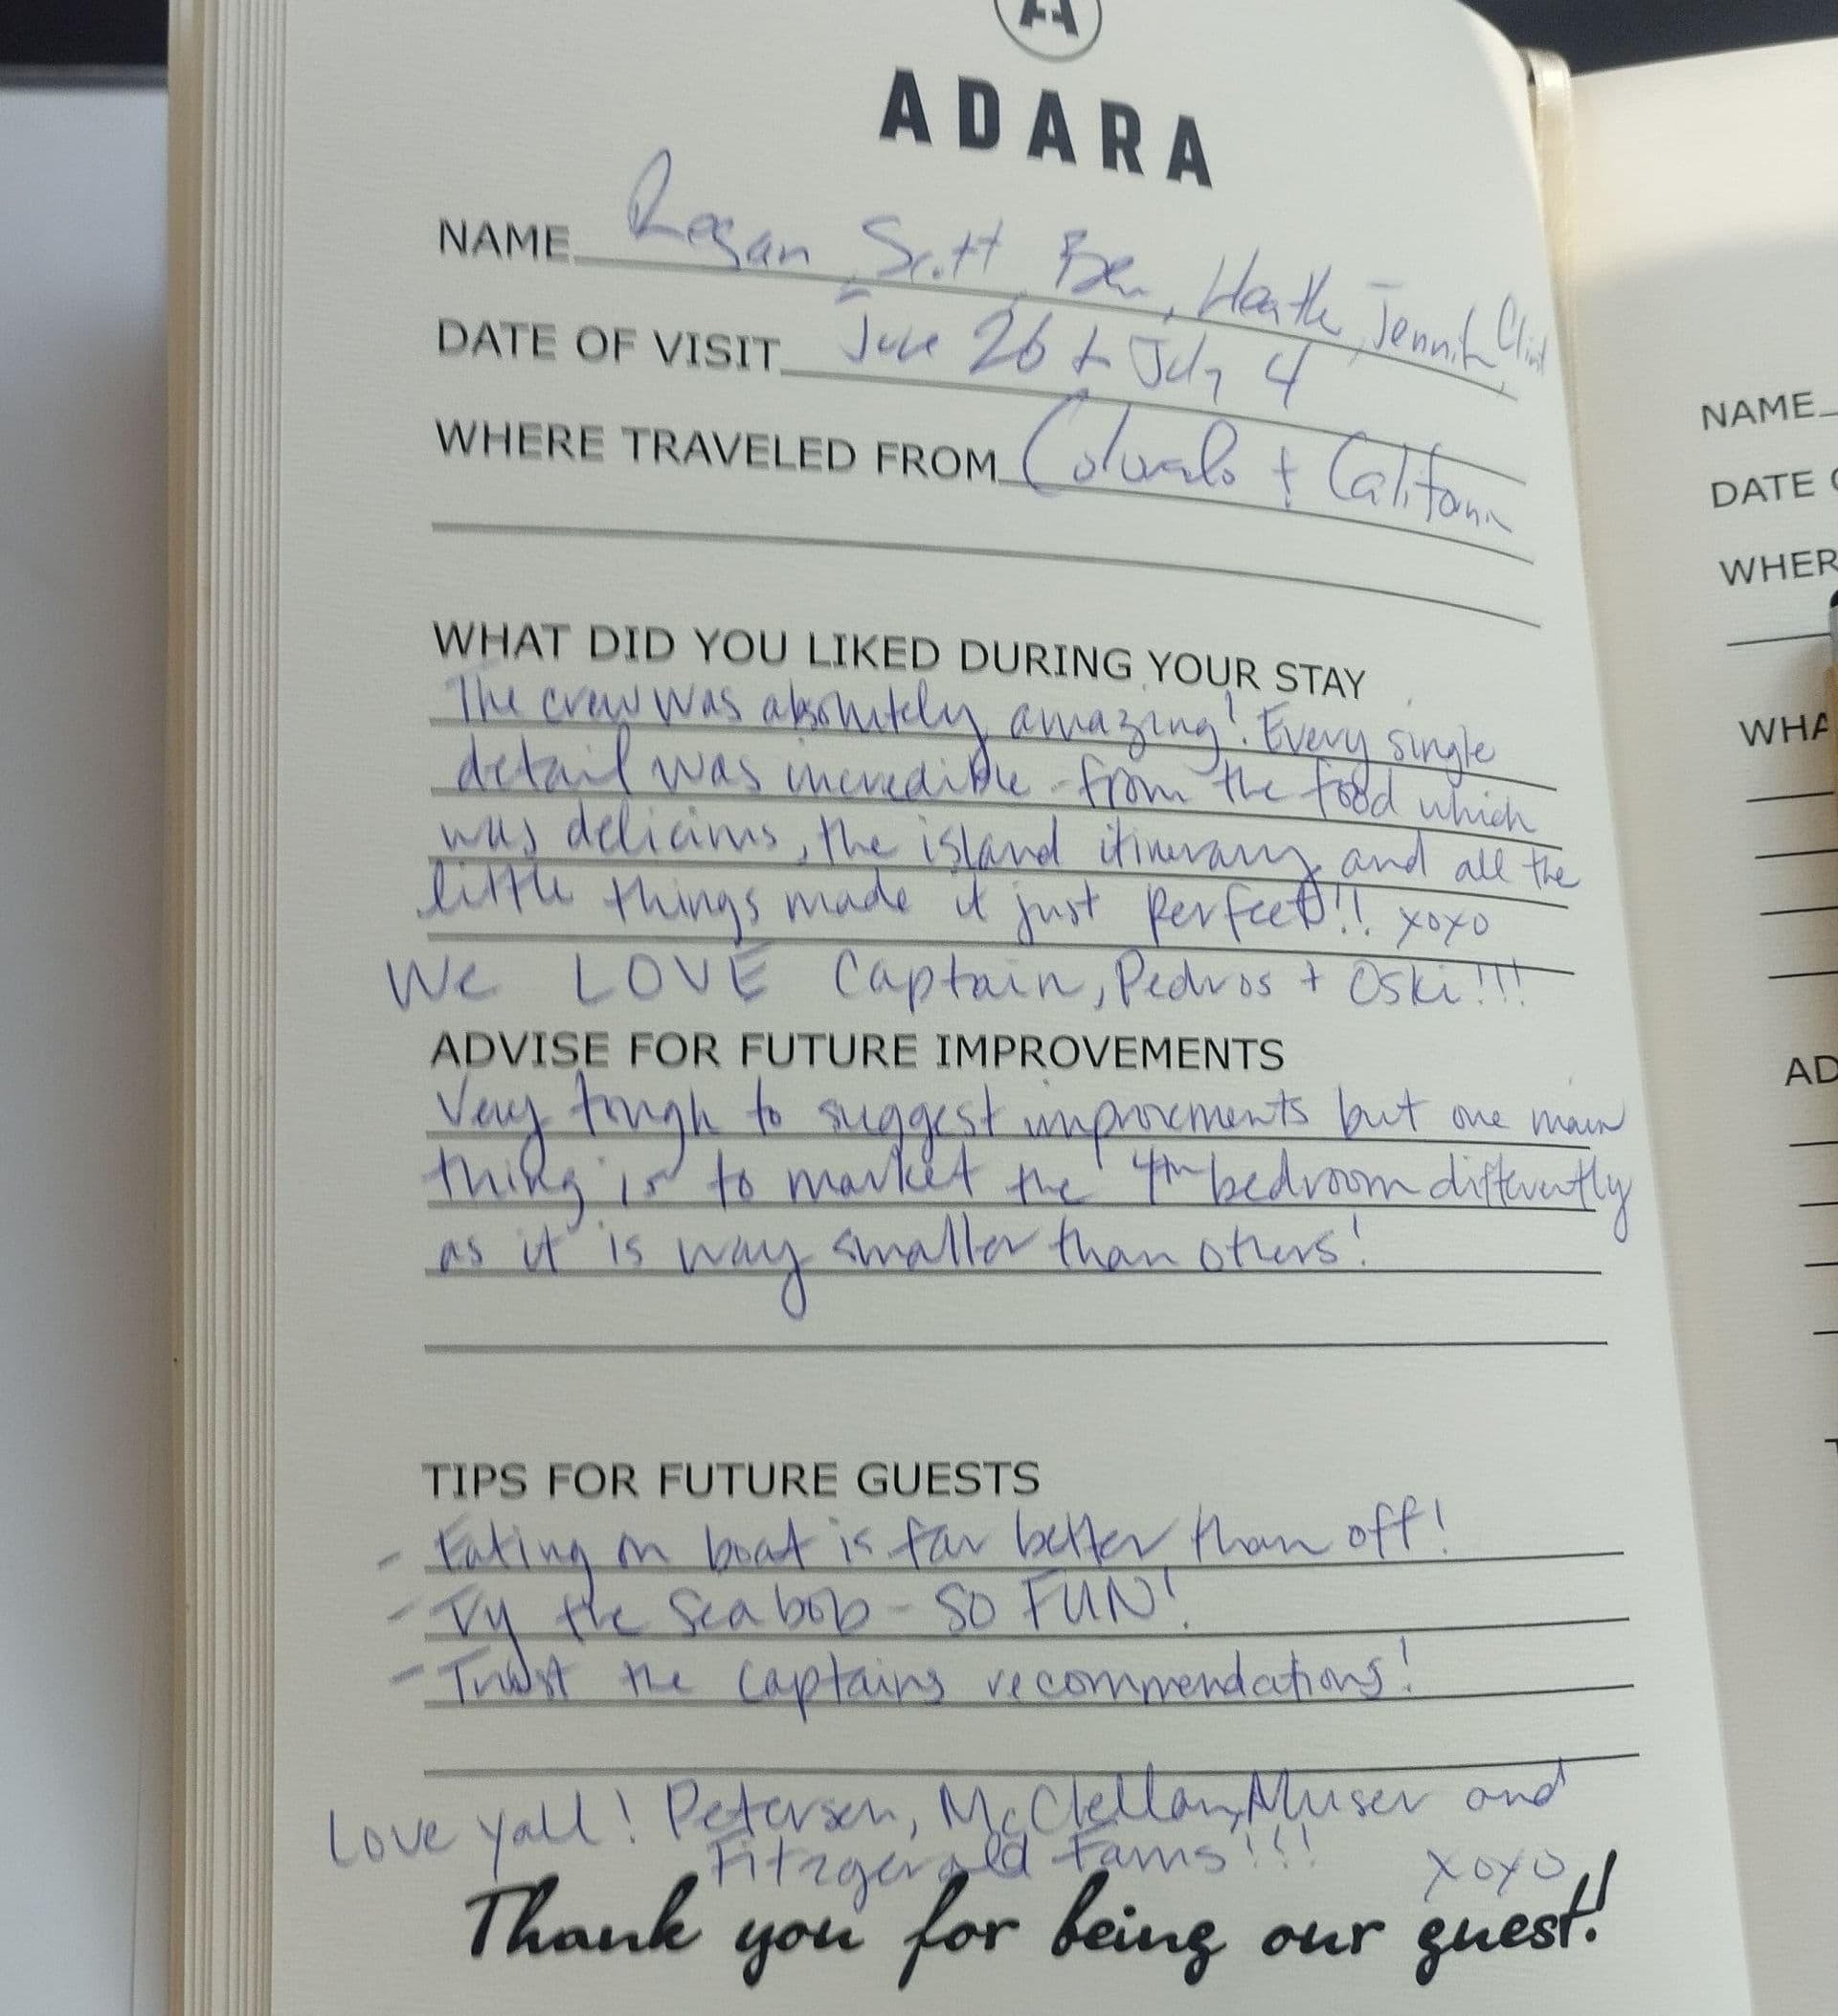 A
ADARA
NAME Regan, Scott, Ben, Heath, Jennif, Clint
DATE OF VISIT June 26 + July 4
WHERE TRAVELED FROM Colorado + California
WHAT DID YOU LIKED DURING YOUR STAY
The crew was absolutely amazing! Every single
detail was incredible - from the food which
was delicious, the island itinerary and all the
little things made it just perfect!!! xoxo
We LOVE Captain, Pedros + Oski!!!
ADVISE FOR FUTURE IMPROVEMENTS
Very tough to suggest improvements but one main
thing is to market the 4th bedroom differently
as it is way smaller than others!
TIPS FOR FUTURE GUESTS
- Eating on boat is far better than off!
- Try the Seabob - SO FUN!
- Trust the captains recommendations!
Love yall! Petersen, McClellan, Muser and
Fitzgerald Fams!!! xoxo
Thank you for being our guest!
NAME
DATE
WHER
WHA
AD